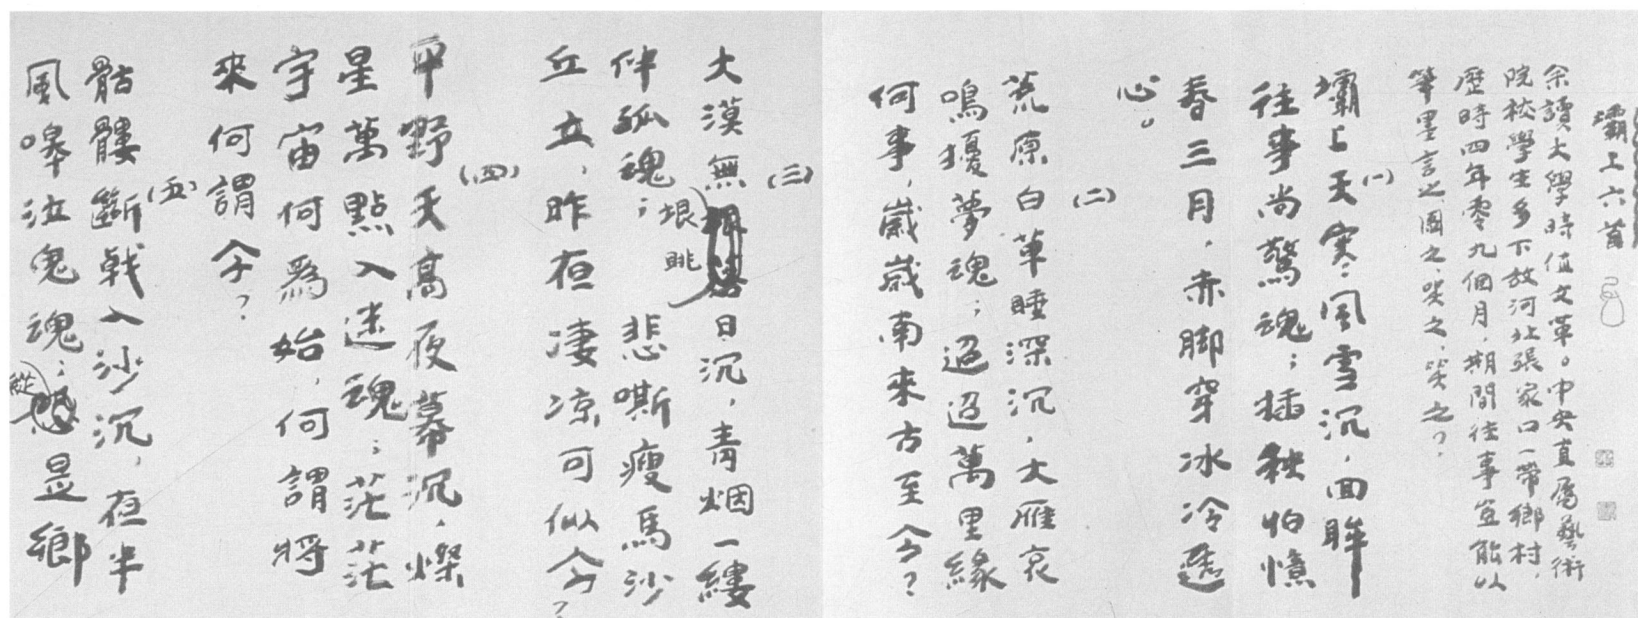 壩上六首
余讀大學時值文革。中央直屬藝術
院校學生多下放河北張家口一帶鄉村,
歷時四年零九個月,期間往事豈能以
筆墨言之、圖之、哭之、笑之?
(一)
壩上天寒風雪沉,回眸
往事尚驚魂;插秧怕憶
春三月,赤脚穿冰冷透
心。
(二)
荒原白草睡深沉,大雁哀
鳴擾夢魂;迢迢萬里緣
何事,歲歲南來古至今?
(三)
大漠無垠眺日沉,青烟一縷
伴孤魂;悲嘶瘦馬沙
丘立,昨夜凄凉可似今?
(四)
平野天高夜幕沉,燦
星萬點入迷魂;茫茫
宇宙何爲始,何謂將
來何謂今?
(五)
骷髏斷戟入沙沉,夜半
風嗥泣鬼魂;縱是鄉